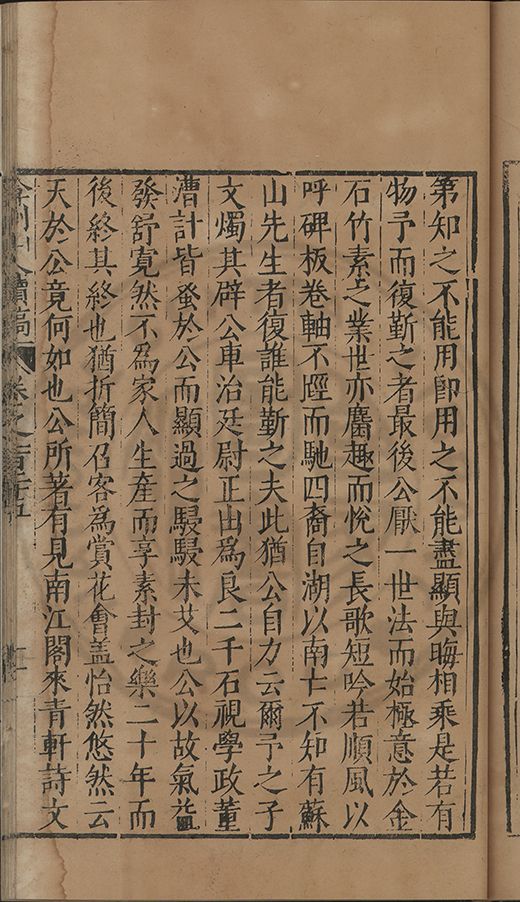 第知之不能用卽用之不能盡顯與晦相乗是若有
物予而復靳之者最後公厭一世法而始極意於金
石竹素之業世亦麕趣而悅之長歌短吟若順風以
呼碑板卷軸不脛而馳四裔自湖以南士不知有蘇
山先生者復誰能靳之夫此猶公自力云爾予之子
文燭其辟公車治廷尉正出爲良二千石視學政董
漕計皆蚤於公而顯過之駸駸未艾也公以故氣益
發舒寛然不爲家人生產而享素封之樂二十年而
後終其終也猶折簡召客爲賞花會盖怡然悠然云
天於公竟何如也公所著有見南江閣來青軒詩文
續稿 卷之一百